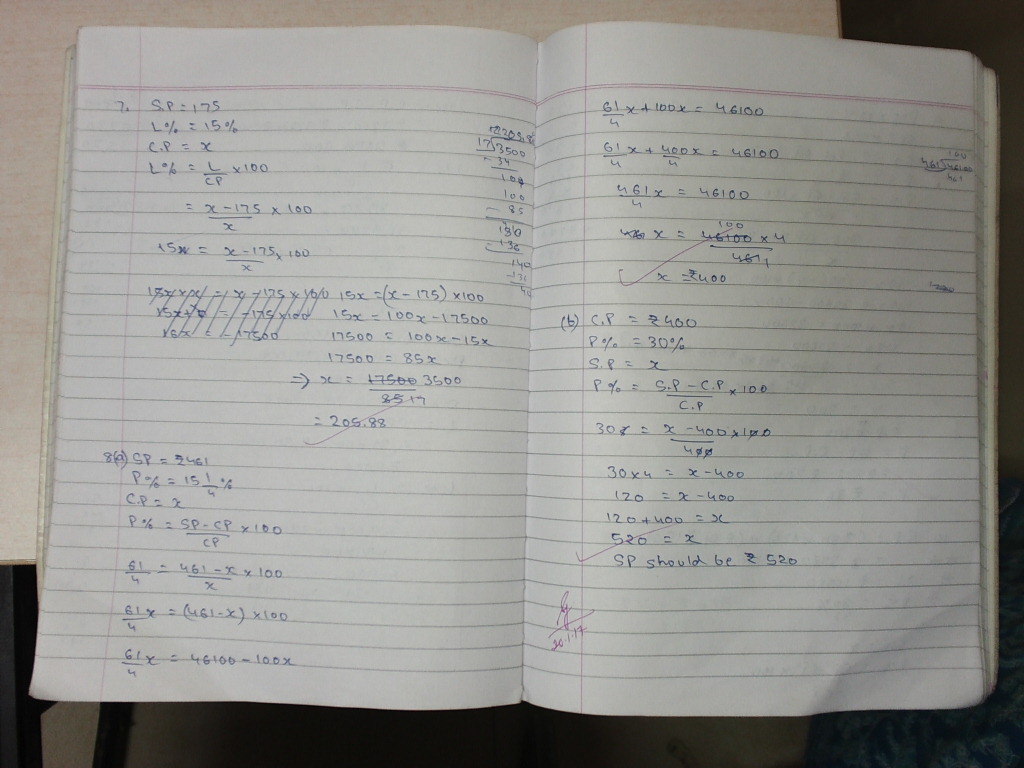 7. S.P = 175
L% = 15%
C.P = x
L% = L/CP × 100
= x - 175/x × 100
15x = x - 175/x × 100
15x = (x - 175) × 100
15x = 100x - 17500
17500 = 100x - 15x
17500 = 85x
=> x = 17500 3500/85 17
= 205.88
205.88
17)3500
- 34
100
100
- 85
- 136
140
8(a) SP = ₹461
P% = 15 1/4 %
C.P = x
P% = SP - CP/CP × 100
61/4 = 461 - x/x × 100
61/4 x = (461 - x) × 100
61/4 x = 46100 - 100x
61/4 x + 100x = 46100
61/4 x + 400x/4 = 46100
461)46100
461
461x/4 = 46100
100
x = 46100 × 4/461 1
x = ₹400
(b) C.P = ₹400
P% = 30%
S.P = x
P% = S.P - C.P/C.P × 100
30 = x - 400/400 × 100
30 × 4 = x - 400
120 = x - 400
120 + 400 = x
520 = x
SP should be ₹ 520
30.1.17